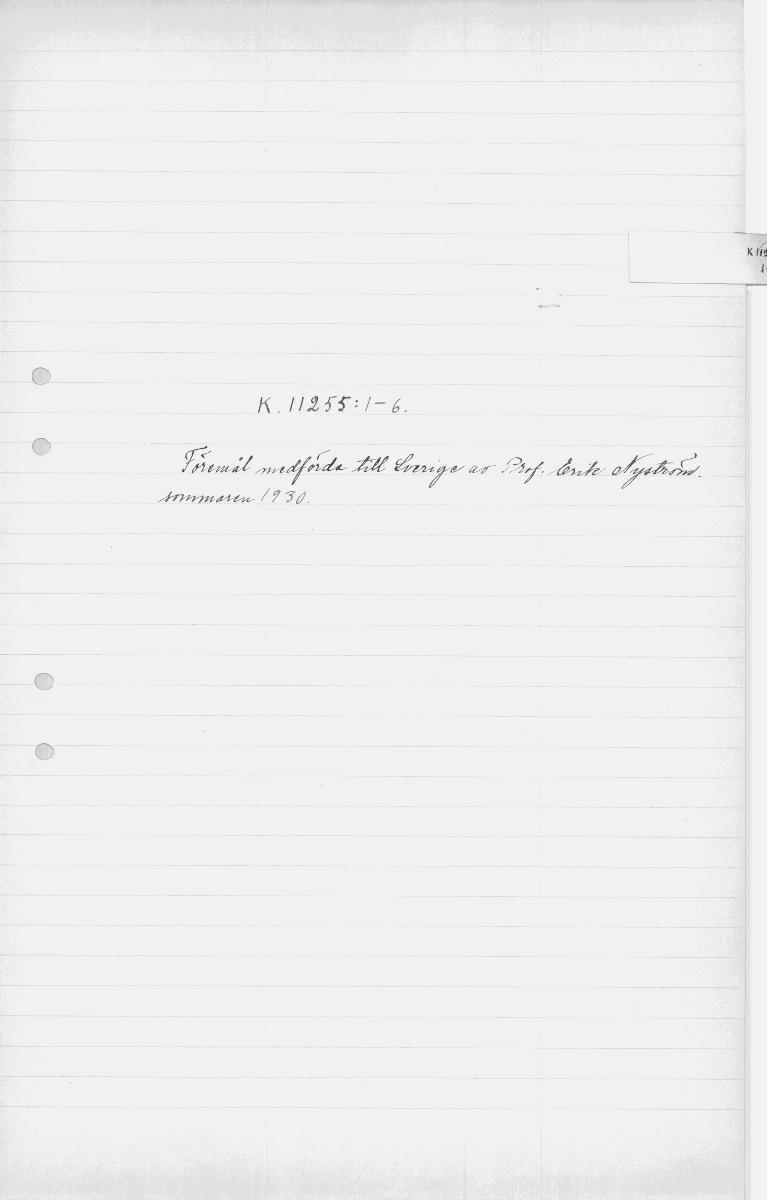 K 112
1-
K. 11255:1-6.
Föremål medförda till Sverige av Prof. Erik Nyström.
sommaren 1930.